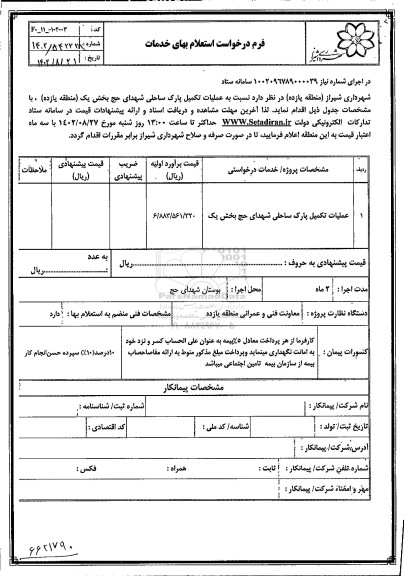 فرم درخواست استعلام بهای خدمات
کد :
شماره :
تاریخ : ۱۴۰۲/۸/۲۱
در اجرای شماره نیاز ۱۰۰۲۰۹۶۷۸۹۰۰۰۰۳۹ سامانه ستاد
شهرداری شیراز (منطقه یازده) در نظر دارد نسبت به عملیات تکمیل پارک ساحلی شهدای حج بخش یک (منطقه یازده) ، با
مشخصات جدول ذیل اقدام نماید. لذا آخرین مهلت مشاهده و دریافت اسناد و ارائه پیشنهادات قیمت در سامانه ستاد
تدارکات الکترونیکی دولت WWW.Setadiran.ir حداکثر تا ساعت ۱۳:۰۰ روز شنبه مورخ ۱۴۰۲/۰۸/۲۷ با سه ماه
اعتبار قیمت به این منطقه اعلام فرمایید، تا در صورت صرفه و صلاح شهرداری شیراز برابر مقررات اقدام گردد.
ردیف مشخصات پروژه/ خدمات درخواستی قیمت برآورد اولیه (ریال) ضریب پیشنهادی قیمت پیشنهادی (ریال) ملاحظات
۱ عملیات تکمیل پارک ساحلی شهدای حج بخش یک ۶/۸۸۳/۵۶۱/۲۲۰
قیمت پیشنهادی به حروف : ریال به عدد : ریال
مدت اجرا : ۲ ماه محل اجرا : بوستان شهدای حج
دستگاه نظارت پروژه : معاونت فنی و عمرانی منطقه یازده مشخصات فنی منضم به استعلام بها : دارد
کسورات پیمان : کارفرما از هر پرداخت معادل ۵٪ بیمه به عنوان علی الحساب کسر و نزد خود
به امانت نگهداری مینماید وپرداخت مبلغ مذکور منوط به ارائه مفاصاحساب
بیمه از سازمان بیمه تامین اجتماعی میباشد
۱۰درصد(۱۰٪) سپرده حسن انجام کار
مشخصات پیمانکار
نام شرکت/ پیمانکار : شماره ثبت/ شناسنامه :
تاریخ ثبت/ تولد : شناسه/ کد ملی : کد اقتصادی :
آدرس شرکت/ پیمانکار :
شماره تلفن شرکت/ پیمانکار : ثابت : همراه : فکس :
مهر و امضاء شرکت/ پیمانکار :
۶۶۲۱۷۹۰